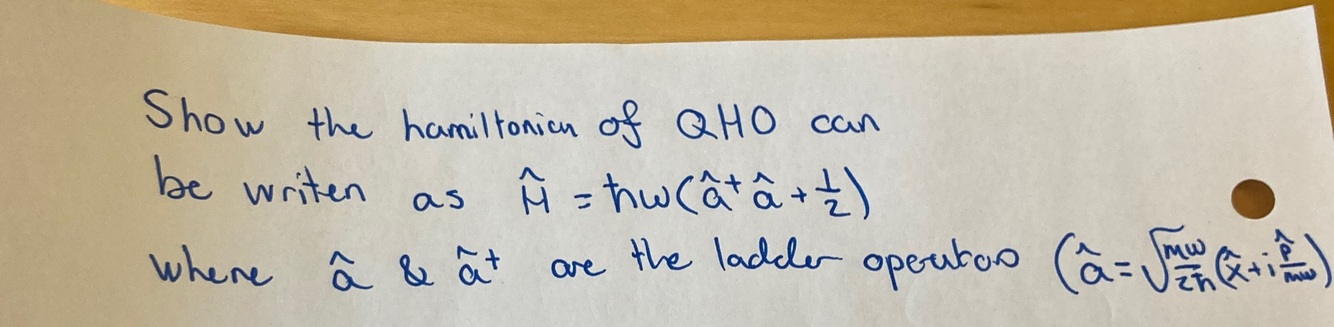 Show the hamiltonian of QHO can
be writen as Ĥ = ħω(â⁺ â + 1/2)
where â & ã⁺ are the ladder operators (â = √(mω/2ħ) (x̂ + i p̂/mω)